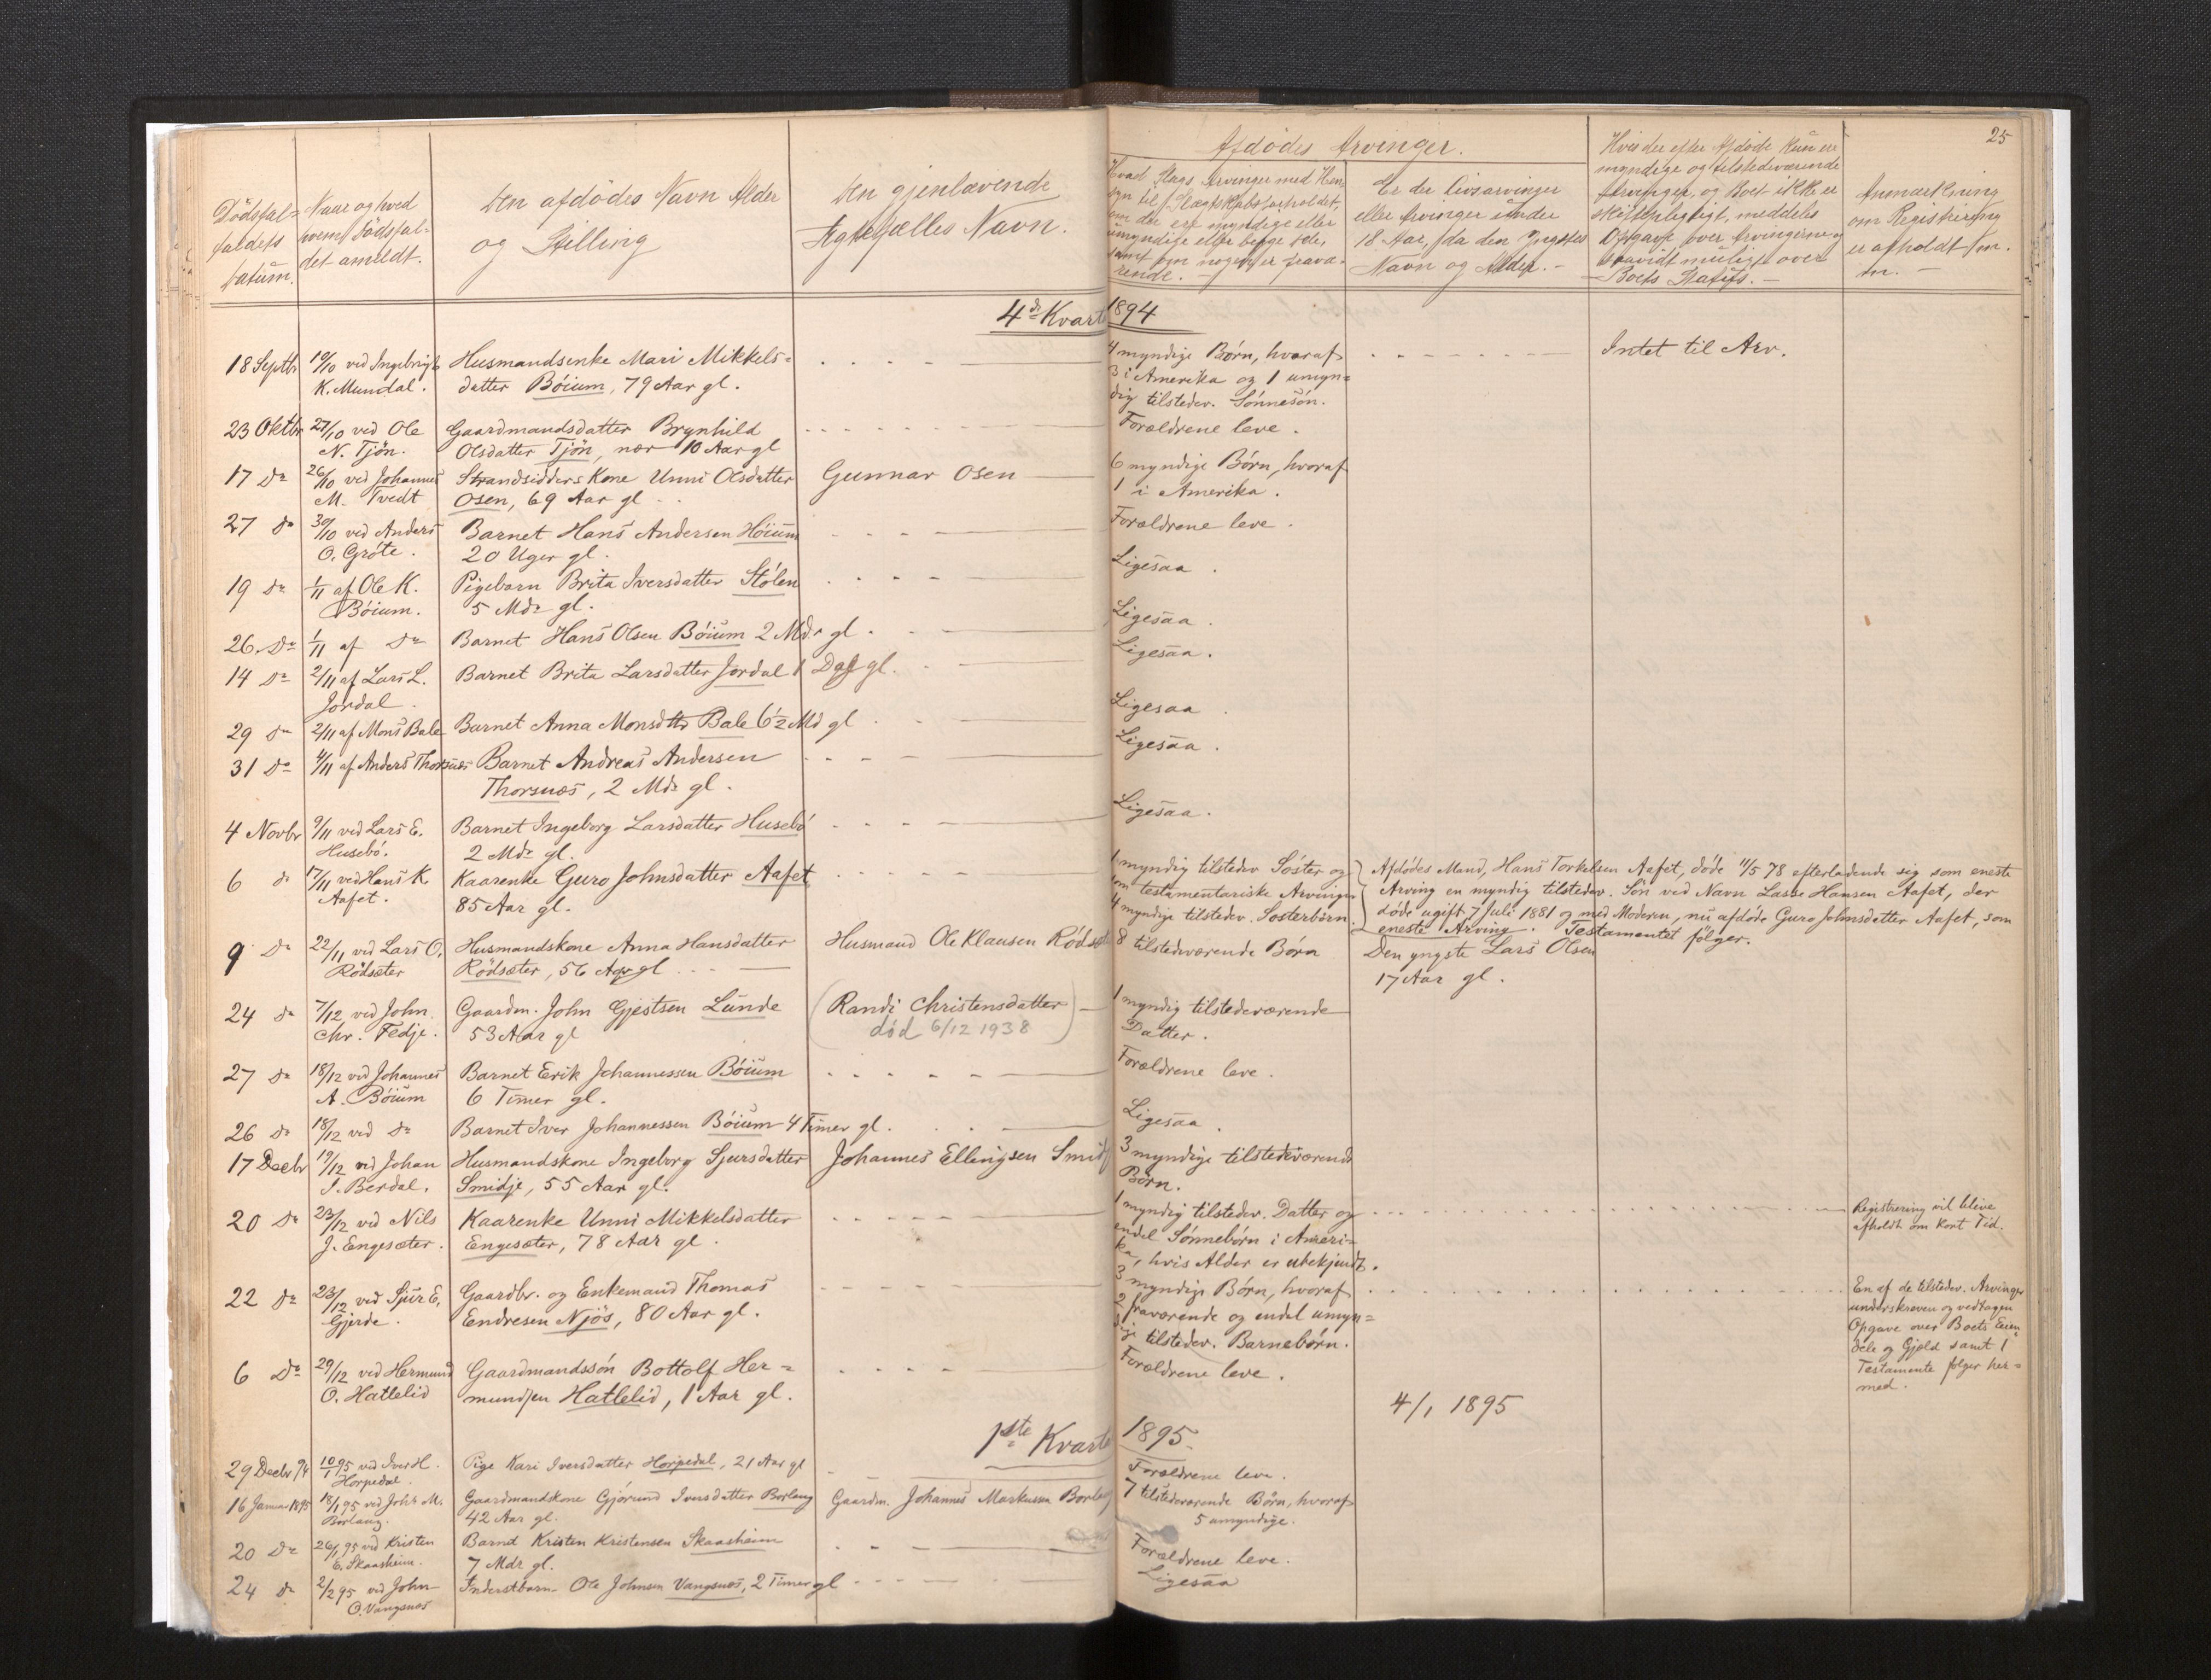 25
Afdødes Arvinger.
Dødsfal=
faldets
Datum.
Naar og hved
hvem Dødsfal=
det anmeldt.
Den afdødes Navn Alder
og Stilling
Den gjenlevende
Ægtefælles Navn.
Hvad Slags Arvinger med Hen=
syn til Slægtskabsforholdet,
om der ere myndige eller
umyndige eller begge Dele,
samt om nogen er fravæ=
rende. -
Er der Livsarvinger
eller Arvinger under
18 Aar, da den Yngstes
Navn og Alder. -
Hvis der efter Afdøde kun er
myndige og tilstedeværende
Arvinger, og Boet ikke er
skiftepligtigt, meddeles
Opgave over Arvingerne og
saavidt muligt over
Boets Status. -
Anmærkning
om Registrering
er afholdt m.
m. -
4de Kvart 1894
18 Septbr 19/10 ved Ingebrigt Husmandsenke Mari Mikkels= 4 myndige Børn, hvoraf Intet til Arv.
K. Mundal. datter Bøium, 79 Aar gl. 3 i Amerika og 1 umyn=
dig tilstedev. Sønnesøn.
23 Oktbr 27/10 ved Ole Gaardmandsdatter Brynhild Forældrene leve.
N. Tjøn. Olsdatter Tjøn, nær 10 Aar gl
17 Do 26/10 ved Johannes Strandsidders Kone Unni Olsdatter Gunnar Osen 6 myndige Børn, hvoraf
M. Tvedt Osen, 69 Aar gl 1 i Amerika.
27 do 30/10 ved Anders Barnet Hans Andersen Høium Forældrene leve.
O. Grøte. 20 Uger gl.
19 Do 1/11 af Ole K. Pigebarn Brita Iversdatter Stølen Ligesaa.
Bøium. 5 Mdr gl.
26. Do 1/11 af Do Barnet Hans Olsen Bøium 2 Mdr gl. Ligesaa.
14 Do 2/11 af Lars L. Barnet Brita Larsdatter Jordal 1 Dag gl. Ligesaa.
Jordal.
29 Do 2/11 af Mons Bale Barnet Anna Monsdtr Bale 6 1/2 Md gl Ligesaa
31 Do 4/11 af Anders Thorsnæs Barnet Andreas Andersen Ligesaa.
Thorsnæs, 2 Mdr gl.
4 Novbr 9/11 ved Lars E. Barnet Ingeborg Larsdatter Husebø Ligesaa.
Husebø. 2 Mdr gl.
6 do 17/11 ved Hans K. Kaarenke Guro Johnsdatter Aafet 1 myndig tilstedev Søster og Afdødes Mand, Hans Torkelsen Aafet, døde 11/5 78 efterladende sig som eneste
Aafet. 85 Aar gl. som testamentariske Arvinger Arving en myndig tilstedev. Søn ved Navn Lasse Hansen Aafet, der
4 myndige tilstedev. Søsterbørn. døde ugift 7 Juli 1881 og med Moderen, nu afdøde Guro Johnsdatter Aafet, som
eneste Arving. Testamentet følger.
9 Do 22/11 ved Lars O. Husmandskone Anna Hansdatter Husmand Ole Klausen Rødsæt 8 tilstedeværende Børn Den yngste Lars Olsen
Rødsæter Rødsæter, 56 Aar gl 17 Aar gl.
24 do 7/12 ved John Gaardm. John Gjestsen Lunde (Randi Christensdatter 1 myndig tilstedeværende
Chr. Fedje. 53 Aar gl død 6/12 1938) Datter.
27 Do 18/12 ved Johannes Barnet Erik Johannessen Bøium Forældrene leve.
A. Bøium 6 Timer gl.
26 Do 18/12 ved Do Barnet Iver Johannessen Bøium 4 Timer gl. Ligesaa.
17 Decbr 19/12 ved Johan Husmandskone Ingeborg Sjursdatter Johannes Ellingsen Smidj 3 myndige tilstedeværende
J. Berdal. Smidje, 55 Aar gl. Børn.
20 Do 23/12 ved Nils Kaarenke Unni Mikkelsdatter 1 myndig tilstedev. Datter og Registrering vil blive
J. Engesæter. Engesæter, 78 Aar gl. endel Sønnebørn i Ameri= afholdt om kort Tid.
ka, hvis Alder er ubekjendt.
22 Do 23/12 ved Sjur E. Gaardbr. og Enkemand Thomas 3 myndige Børn, hvoraf En af de tilstedev. Arvinger
Gjerde. Endresen Njøs, 80 Aar gl. 2 fraværende og endel umyn= underskreven og vedtagen
dige tilstedev. Barnebørn. Opgave over Boets Eien
dele og Gjæld samt 1
Testamente følger her=
med.
6 Do 29/12 ved Hermund Gaardmandssøn Bottolf Her= Forældrene leve.
O. Hatlelid mundsen Hatlelid, 1 Aar gl.
4/1 1895
1ste Kvart 1895.
29 Decbr 94 10/1 95 ved Iver H. Pige Kari Iversdatter Horpedal, 21 Aar gl Forældrene leve.
Horpedal.
16 Januar 1895 18/1 95 ved Johs M. Gaardmandskone Gjørund Iversdatter Borlaug Gaardm. Johannes Markussen Borlaug 7 tilstedeværende Børn, hvoraf
Borlaug. 42 Aar gl. 5 umyndige.
20 Do 26/1 95 ved Kristen Barnet Kristen Kristensen Skaasheim Forældrene leve.
E. Skaasheim. 7 Mdr gl.
24 do 2/2 95 ved John Inderstbarn Ole Johnsen Vangsnæs, 2 Timer gl Ligesaa
O. Vangsnæs